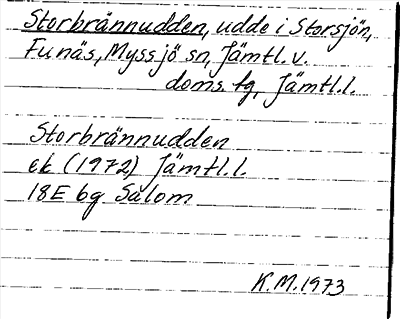 Storbrännudden, udde i Storsjön,
Funäs, Myssjö sn, Jämtl. v.
doms. tg, Jämtl.l.
Storbrännudden
ek (1972) Jämtl.l.
18E 6g Salom
K.M.1973